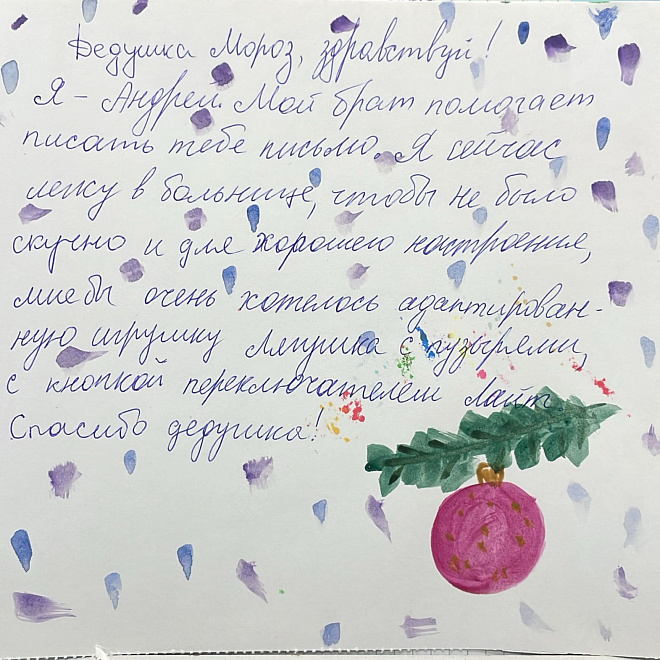 Дедушка Мороз, здравствуй!
Я - Андрей. Мой брат помогает
писать тебе письмо. Я сейчас
лежу в больнице, чтобы не было
скучно и для хорошего настроения,
мне бы очень хотелось адаптирован-
ную игрушку Лягушка с пузырями,
с кнопкой переключателем Лайт.
Спасибо дедушка!